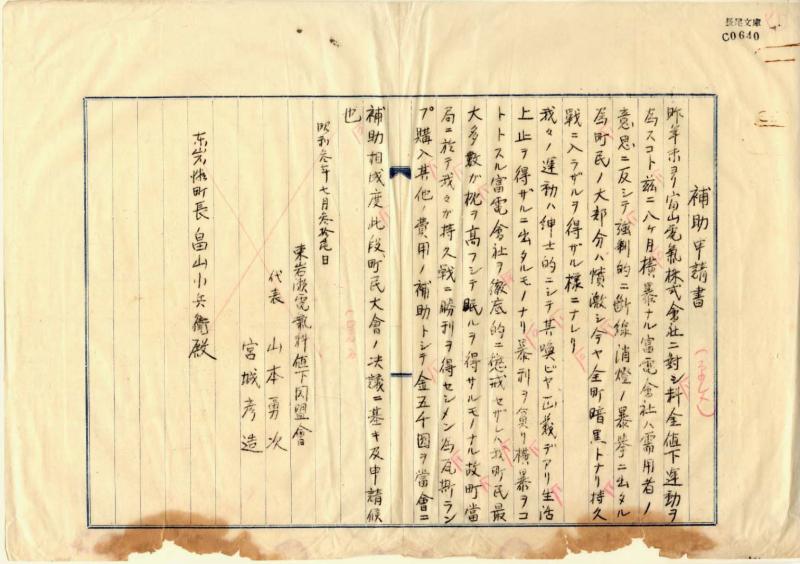 長尾文庫
C0640
補助申請書
昨年末ヨリ富山電氣株式會社ニ対シ料金値下運動ヲ
為スコト茲ニ八ヶ月横暴ナル富電會社ハ需用者ノ
意思ニ反シテ強制的ニ断線消燈ノ暴挙ニ出タル
為町民ノ大部分ハ憤激シ今ヤ全町暗黒トナリ持久
戦ニ入ラザルヲ得ザル様ニナレリ
我々ノ運動ハ紳士的ニシテ其喚ビヤ正義デアリ生活
上止ヲ得ザルニ出タルモノナリ暴利ヲ貪リ横暴ヲコ
トトスル富電會社ヲ徹底的ニ懲戒セザレハ我町民最
大多数ガ枕ヲ高フシテ眠ルヲ得サルモノナル故町當
局ニ於テ我々ガ持久戦ニ勝利ヲ得セシメン為瓦斯ラン
プ購入其他ノ費用ノ補助トシテ金五千円ヲ當會ニ
補助相成度此段町民大會ノ決議ニ基キ及申請候
也
昭和参年七月参拾日
東岩瀬電氣料値下同盟會
代表 山本勇次
宮城彦造
東岩瀬町長畠山小兵衛殿